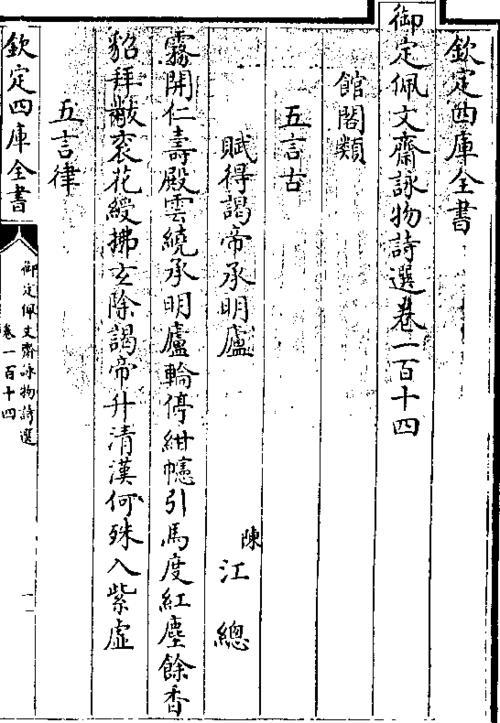 欽定四庫全書
御定佩文齋詠物詩選卷一百十四
館閣類
五言古
賦得謁帝承明廬 陳 江總
霧開仁壽殿雲繞承明廬輪停紺幰引馬度紅塵餘香
貂拜黻衮花綬拂玄除謁帝升清漢何殊入紫虛
五言律
欽定四庫全書
御定佩文齋詠物詩選
卷一百十四
一